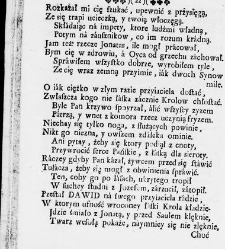 )( 22 )(
Rozkazał mi cię szukać, upewnić z przysięgą,
Ze się trapi ucieczką, y twoią włoczęgą.
Składaiąc na impety, ktore ludźmi władną,
Potym na zausznikow, co im rozum kradną,
Jam też rzecze Jonatas, ile mogł pracował,
Bym cię w zdrowiu, a Oyca od grzechu zachował.
Sprawiłem wszystko dobrze, wyrobiłem tyle,
Ze cię wraz zemną przyimie, iák dwoch Synow mile.
O iák ciężko w złym razie przyiaciela dostać,
Zwłaszcza kogo nie łáska zacznie Krolow chłostáć
Byle Pan krzywo spoyrzał, álić wszyscy zyzem
Pierzą, y wnet z komora rzecz uczynią fryzem.
Niechay się tylko noga, z służących powinie,
Nikt go niezna, y owszem zdáleka ominie,
Ani pytay, żeby się ktory podiął z cnoty,
Przywrocić serce Pańskie, z łaską dla sieroty.
Ráczey gdyby Pan kázał, żywcem przed się stawić
Tułacza, żeby się mogł z obwinienia sprawić.
Ten, coby go po lisach, ukrytego tropił
W suchey studni z Jozefem, zarzucił, zátopił.
Przestał DAWID ná swego przyiaciela zdanie,
W ktorym ufność wrodoney Filiś Krola kładnie.
Jdzie śmiało z Jonatą, y przed Saulem klęknie,
Twarz wesołą pokaże, naymniey się nie zlęknie,
Choć